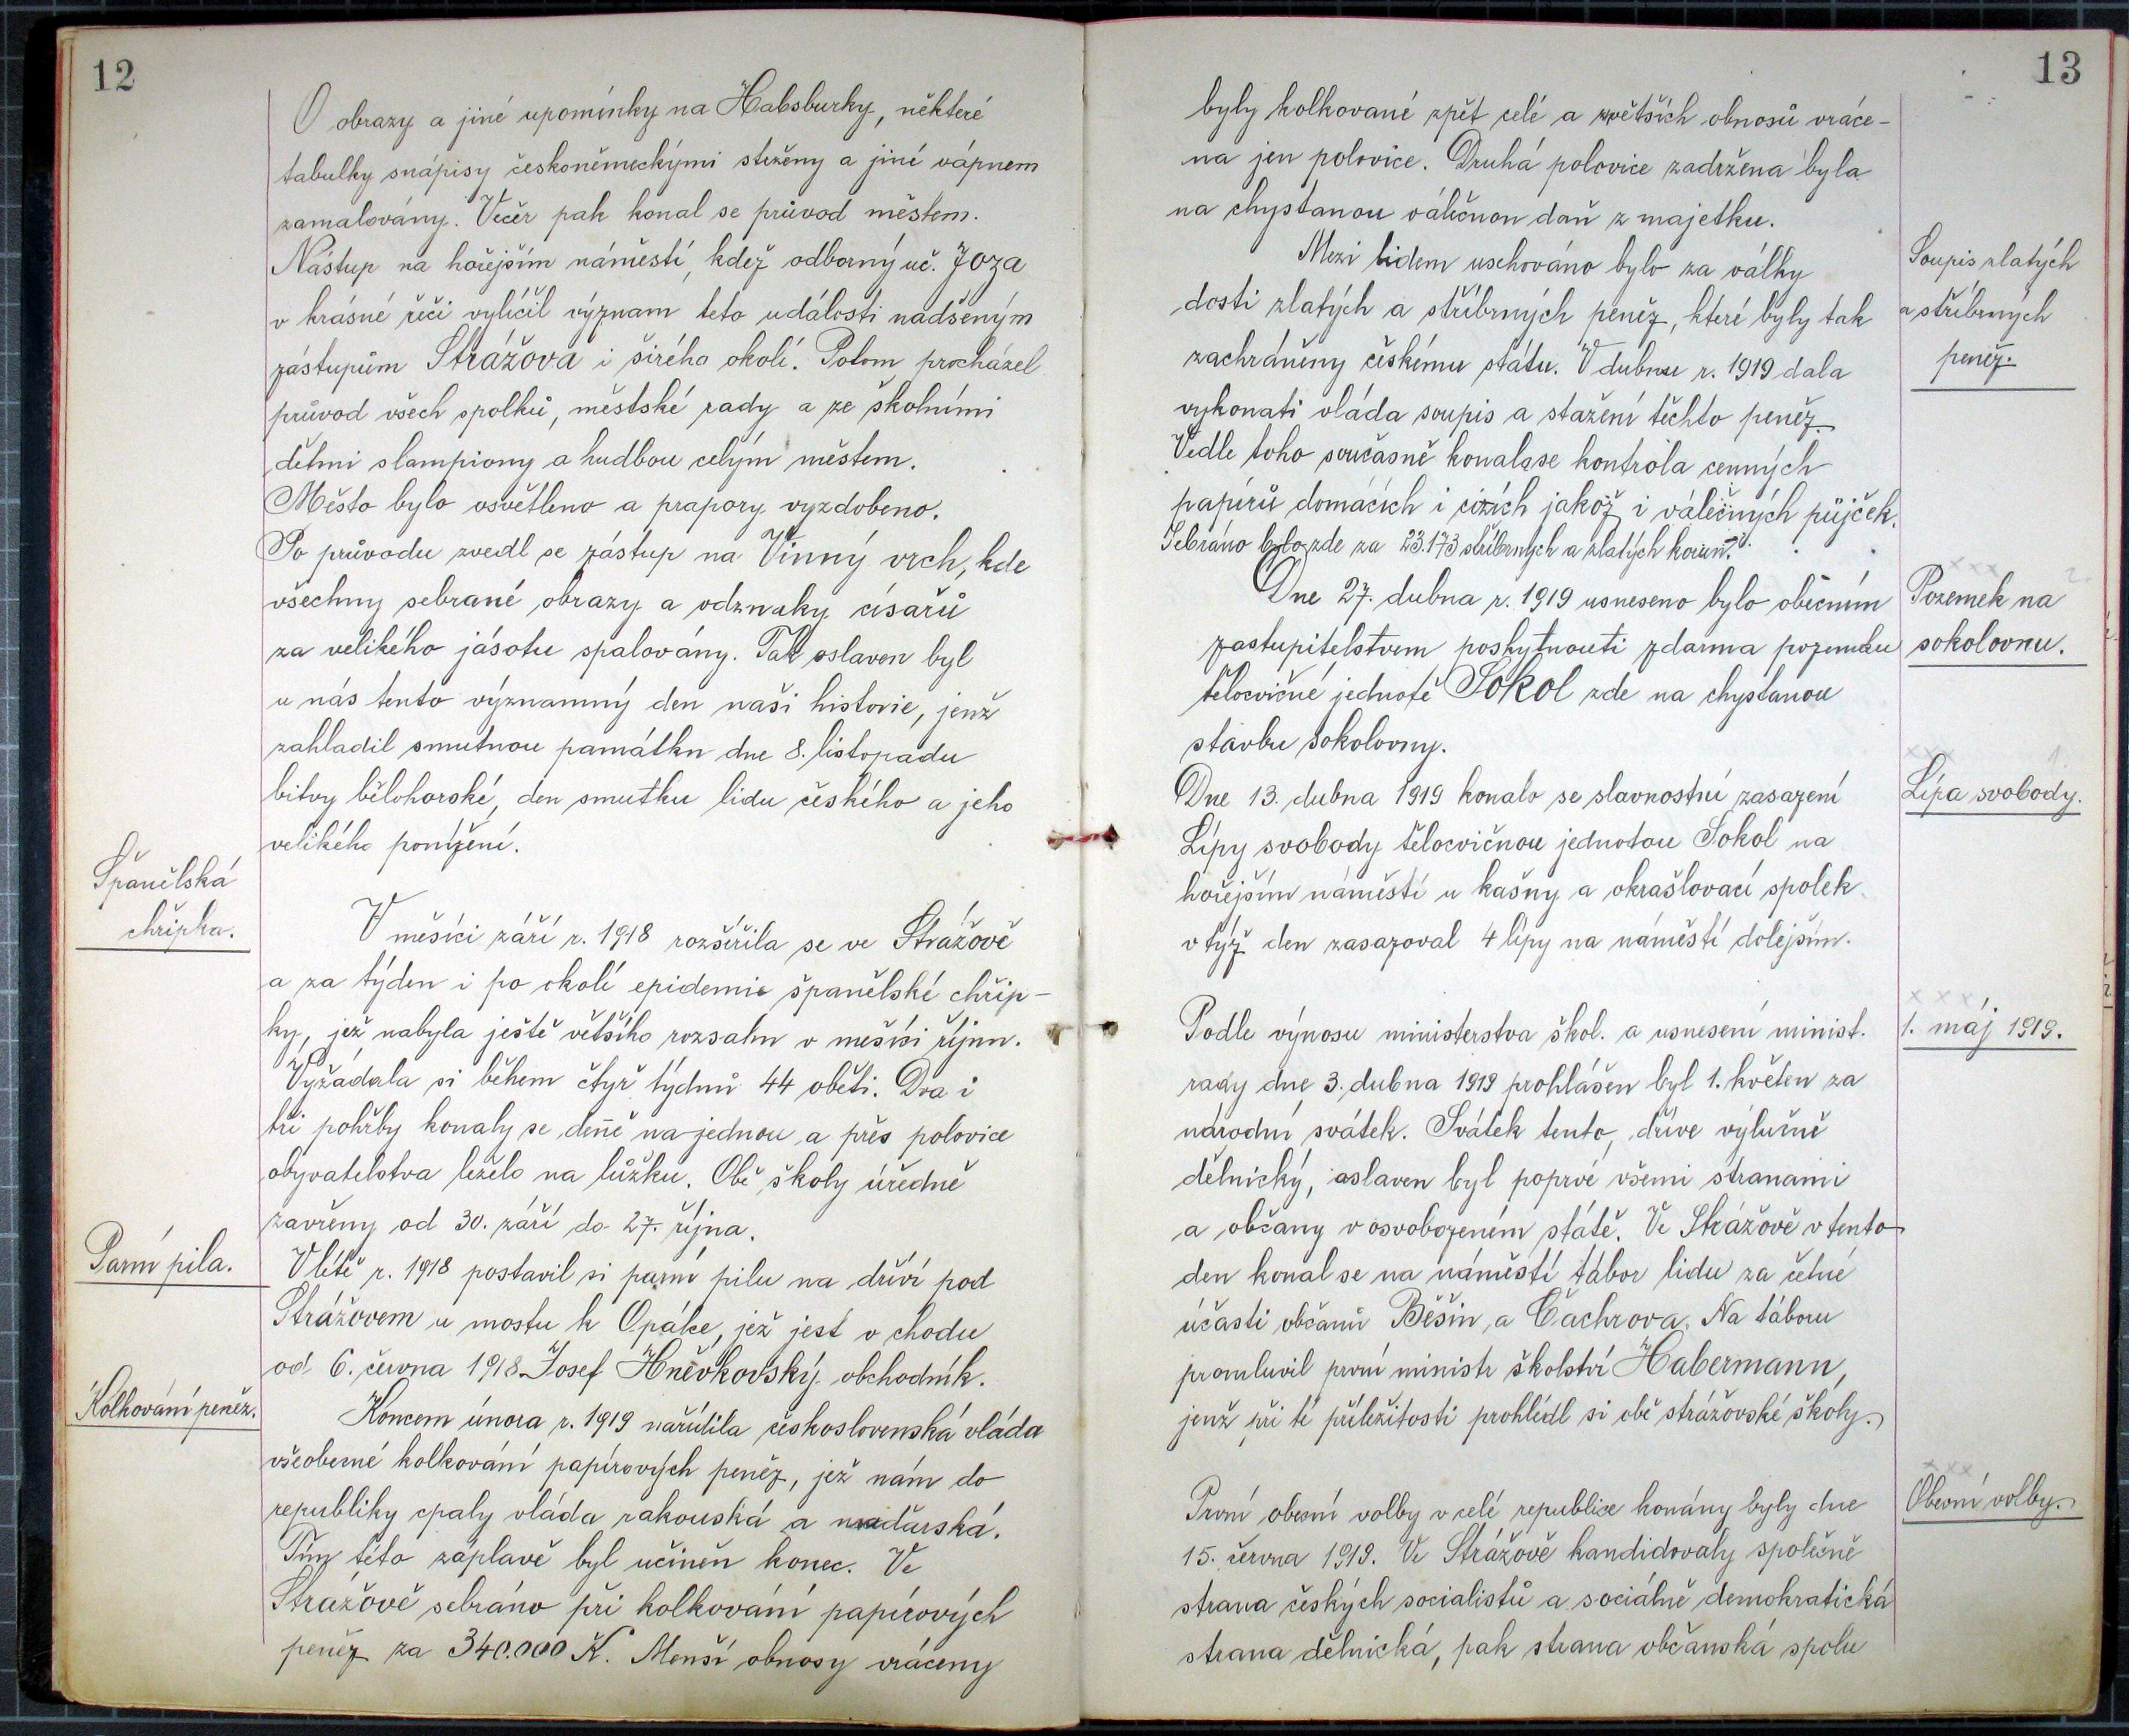 12
O obrazy a jiné upomínky na Habsburky, některé
tabulky snápisy českoněmeckými strženy a jiné vápnem
zamalovány. Večer pak konal se průvod městem.
Nástup na hořejším náměstí, kdež odborný uč. Joza
v krásné řeči vylíčil význam této události nadšeným
zástupům Strážova i širého okolí. Potom procházel
průvod všech spolků, městské rady a ze školními
dětmi slampiony a hudbou celým městem.
Město bylo osvětleno a prapory vyzdobeno.
Po průvodu zvedl se zástup na Vinný vrch, kde
všechny sebrané obrazy a odznaky císařů
za velikého jásotu spalovány. Tak oslaven byl
u nás tento významný den naši historie, jenž
zahladil smutnou památku dne 8. listopadu
bitvy bělohorské, den smutku lidu českého a jeho
velikého ponížení.
Španělská
chřipka.
V měsíci září r. 1918 rozšířila se ve Strážově
a za týden i po okolí epidemie španělské chřip-
ky, jež nabyla ještě většího rozsahu v měsíci říjnu.
Vyžádala si během čtyř týdnů 44 oběti. Dva i
tři pohřby konaly se denně na jednou a přes polovice
obyvatelstva leželo na lůžku. Obě školy úředně
zavřeny od 30. září do 27. října.
Parní pila.
V létě r. 1918 postavil si parní pilu na dříví pod
Strážovem u mostu k Opálce, jež jest v chodu
od 6. června 1918 Josef Hněvkovský obchodník.
Kolkování peněz.
Koncem února r. 1919 nařídila československá vláda
všeobecné kolkování papírových peněz, jež nám do
republiky cpaly vláda rakouská a maďarská.
Tím této záplavě byl učiněn konec. Ve
Strážově sebráno při kolkování papírových
peněz za 340.000 K. Menší obnosy vráceny
13
byly kolkované zpět celé a zvětších obnosů vráce-
na jen polovice. Druhá polovice zadržena byla
na chystanou válečnou daň z majetku.
Soupis zlatých
a stříbrných
peněz.
Mezi lidem uschováno bylo za války
dosti zlatých a stříbrných peněz, které byly tak
zachráněny českému státu. V dubnu r. 1919 dala
vykonati vláda soupis a stažení těchto peněz.
Vedle toho současně konala se kontrola cenných
papírů domácích i cizích jakož i válečných půjček.
Sebráno bylo zde za 23.173 stříbrných a zlatých korun.
Pozemek na
sokolovnu.
Dne 27. dubna r. 1919 usneseno bylo obecním
zastupitelstvem poskytnouti zdarma pozemku
tělocvičné jednotě Sokol zde na chystanou
stavbu sokolovny.
Lípa svobody.
Dne 13. dubna 1919 konalo se slavnostní zasazení
Lípy svobody tělocvičnou jednotou Sokol na
hořejším náměstí u kašny a okrašlovací spolek
v týž den zasazoval 4 lípy na náměstí dolejším.
1. máj 1919.
Podle výnosu ministerstva škol. a usnesení minist.
rady dne 3. dubna 1919 prohlášen byl 1. květen za
národní svátek. Svátek tento, dříve výlučně
dělnický, oslaven byl poprvé všemi stranami
a občany v osvobozeném státě. Ve Strážově v tento
den konal se na náměstí tábor lidu za četné
účasti občanů Běšin a Čachrova. Na táboru
promluvil první ministr školství Habermann,
jenž při té příležitosti prohlédl si obě strážovské školy.
Obecní volby.
První obecní volby v celé republice konány byly dne
15. června 1919. Ve Strážově kandidovaly společně
strana českých socialistů a sociálně demokratická
strana dělnická, pak strana občanská spolu